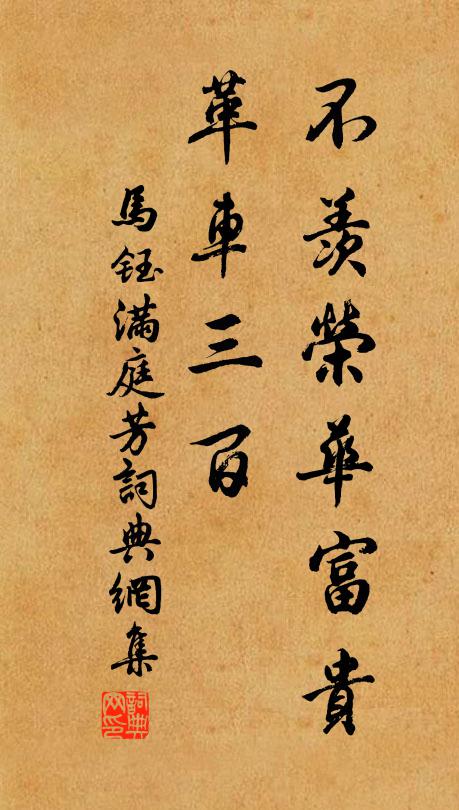 不羨榮華富貴
革車三百
馬鈺滿庭芳詞典網集
詞典网印